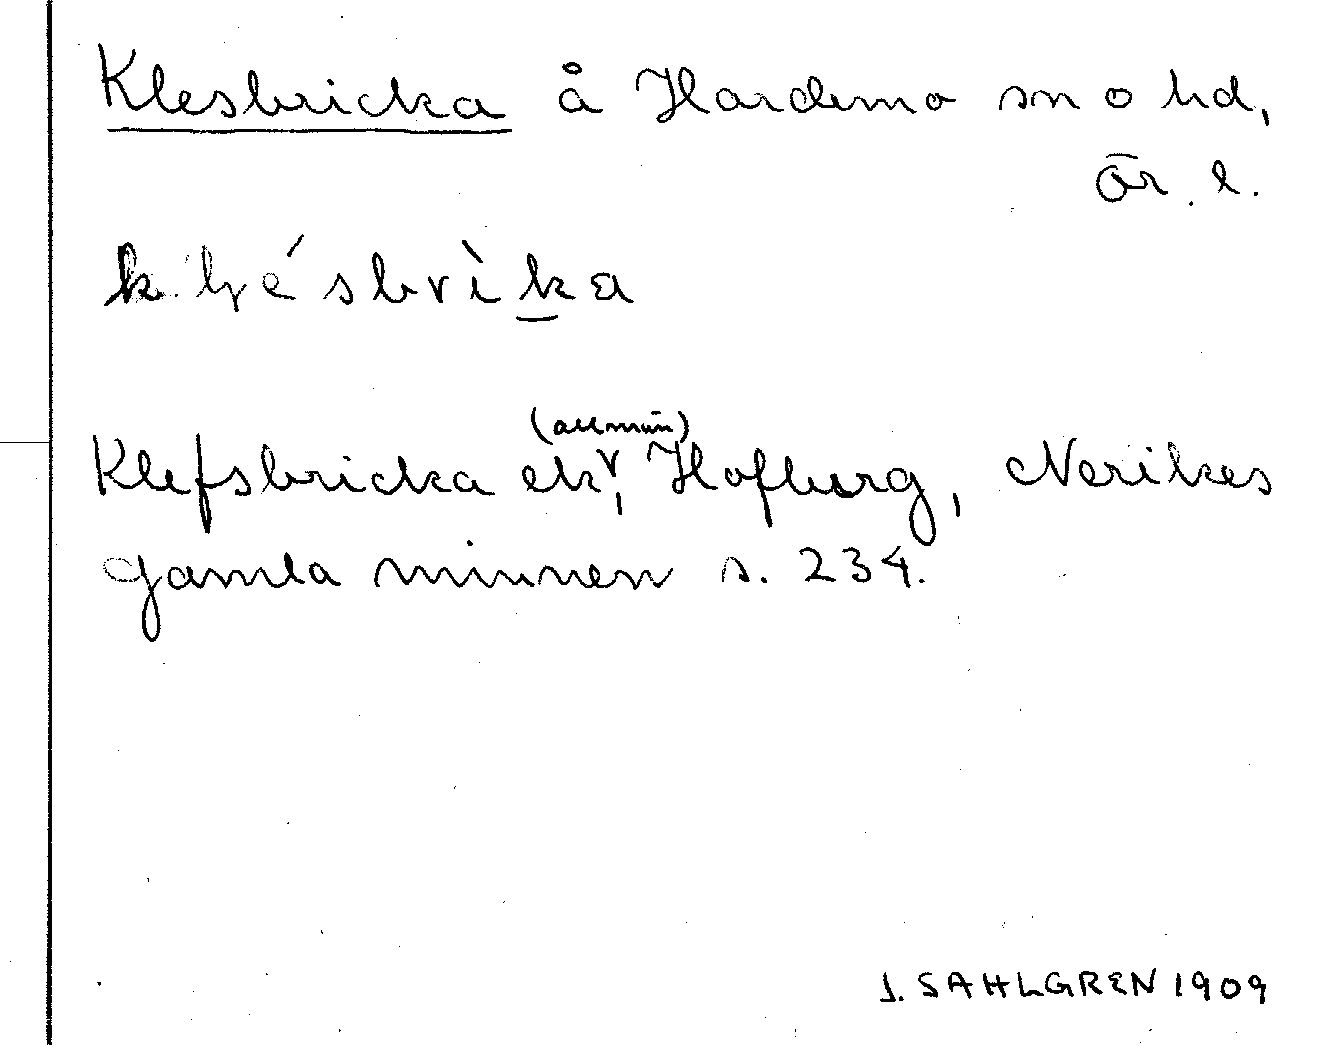 Klesbricka å Hardemo sn o hd,
Ör. l.
(allmän)
Klefsbricka ek, Hofberg, Nerikes
gamla minnen s. 234.
J. SAHLGREN 1909